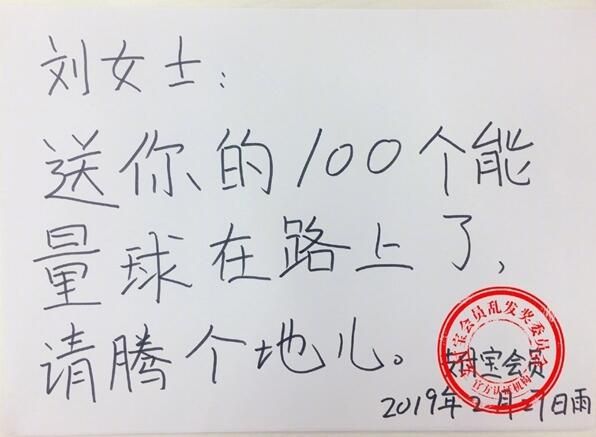 刘女士：
送你的100个能
量球在路上了，
请腾个地儿。
支付宝会员
2019年2月27日雨
宝会员乱发奖委员会
官方认证机构